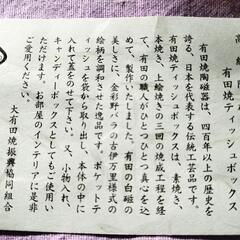 有田焼ティッシュボックス
有田焼陶磁器は、四百年以上の歴史を
誇る、日本を代表する伝統工芸品です。
有田焼ティッシュボックスは、素焼き、
本焼き、上絵焼きの三回の焼成工程を経
て、有田の職人がひとつひとつ真心を込
めて、製作いたしました。有田の白磁の
美しさに、金彩野バラの古伊万里様式の
絵柄を調和させた逸品です。ポケットテ
ィッシュを袋から取り出し、本体の中に
入れて蓋をせずに下さい。又、小物入れ、
キャンディーボックスとしてもご使用い
ただけます。お部屋のインテリアに是非
ご愛用ください。
大有田焼振興協同組合